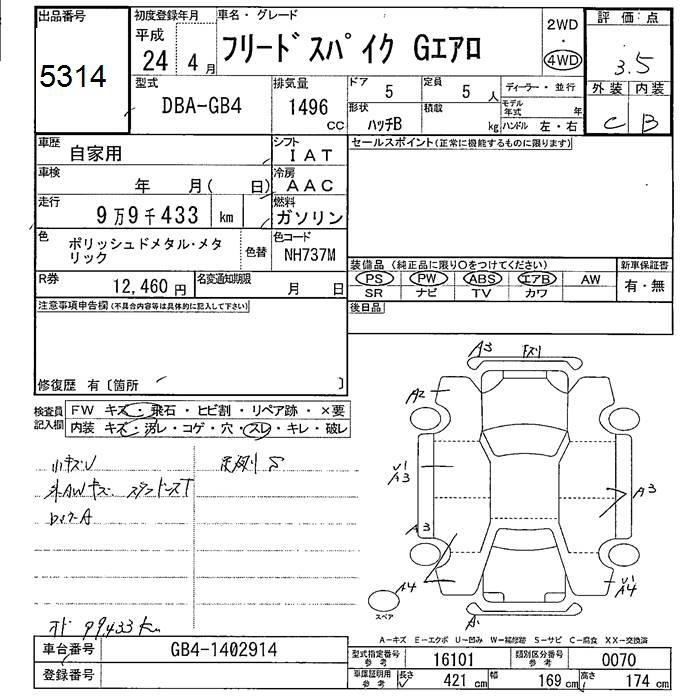 出品番号
5314
初度登録年月
平成
24年 4月
車名・グレード
フリードスパイク Gエアロ
2WD
・
4WD
評価点
3.5
外装 内装
C B
型式
DBA-GB4
排気量
1496
CC
ドア
5
定員
5人
形状
ハッチB
積載
kg
ディーラー・並行
モデル年式 年
ハンドル 左・右
車歴
自家用
シフト
IAT
車検
年 月( 日)
冷房
AAC
走行
9万9千433 km
燃料
ガソリン
色
ポリッシュドメタル・メタ
リック
色替
色コード
NH737M
R券
12,460円
名変通知期限
月 日
セールスポイント(正常に機能するものに限ります)
装備品(純正品に限り○をつけてください)
PS PW ABS エアB AW
SR ナビ TV カワ
新車保証書
有・無
後日品
注意事項申告欄(不具合内容等は具体的に記入して下さい)
修復歴 有〔箇所 〕
検査員
記入欄
FW キズ・飛石・ヒビ割・リペア跡・×要
内装 キズ・汚レ・コゲ・穴・スレ・キレ・破レ
小キズU
A3
A2
U1
A3
A3
A3
A4
U1
A4
A1
スペア
オド 99433km
A−キズ E−エクボ U−凹み W−補修跡 S−サビ C−腐食 XX−交換済
車台番号
GB4-1402914
登録番号
型式指定番号
参考
16101
類別区分番号
参考
0070
車庫証明用
参考
長さ
421 cm
幅
169 cm
高さ
174 cm